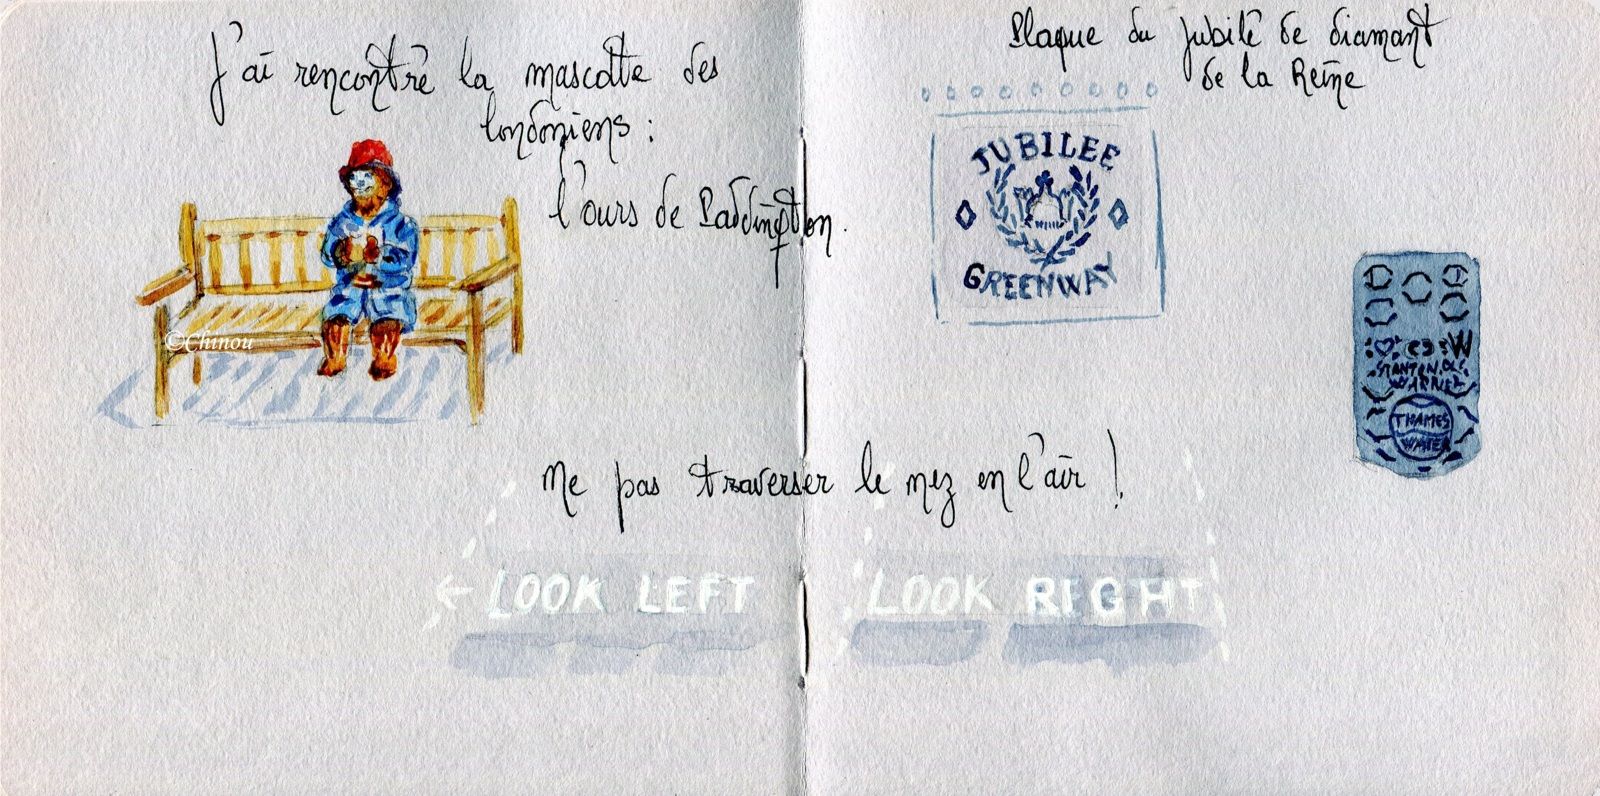 J'ai rencontré la mascotte des
londoniens :
l'ours de Paddington.
©Chinou
Plaque du Jubilé de diamant
de la Reine
JUBILEE
GREENWAY
W
STANTON
WARNIER
THAMES
WATER
Ne pas traverser le nez en l'air !
← LOOK LEFT
LOOK RIGHT